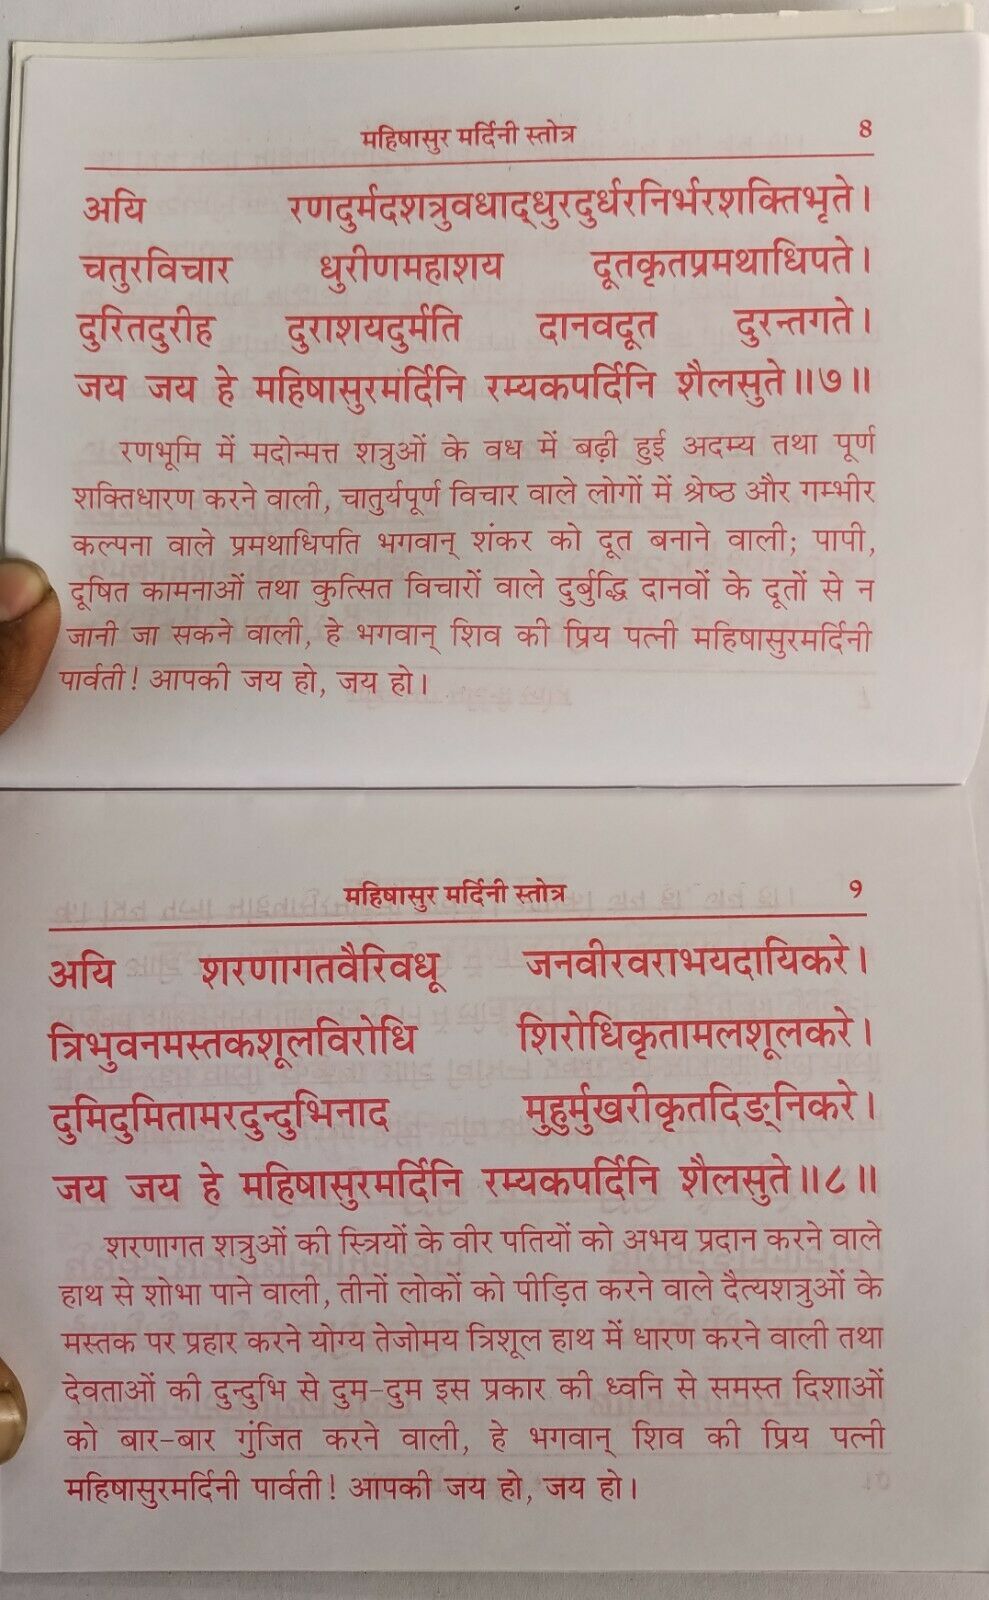 महिषासुर मर्दिनी स्तोत्र 8
अयि रणदुर्मदशत्रुवधाद्धुरदुर्धरनिर्भरशक्तिभृते।
चतुरविचार धुरीणमहाशय दूतकृतप्रमथाधिपते।
दुरितदुरीह दुराशयदुर्मति दानवदूत दुरन्तगते।
जय जय हे महिषासुरमर्दिनि रम्यकपर्दिनि शैलसुते॥७॥
रणभूमि में मदोन्मत्त शत्रुओं के वध में बढ़ी हुई अदम्य तथा पूर्ण
शक्तिधारण करने वाली, चातुर्यपूर्ण विचार वाले लोगों में श्रेष्ठ और गम्भीर
कल्पना वाले प्रमथाधिपति भगवान् शंकर को दूत बनाने वाली; पापी,
दूषित कामनाओं तथा कुत्सित विचारों वाले दुर्बुद्धि दानवों के दूतों से न
जानी जा सकने वाली, हे भगवान् शिव की प्रिय पत्नी महिषासुरमर्दिनी
पार्वती! आपकी जय हो, जय हो।
महिषासुर मर्दिनी स्तोत्र 9
अयि शरणागतवैरिवधू जनवीरवराभयदायिकरे।
त्रिभुवनमस्तकशूलविरोधि शिरोधिकृतामलशूलकरे।
दुमिदुमितामरदुन्दुभिनाद मुहुर्मुखरीकृतदिङ्निकरे।
जय जय हे महिषासुरमर्दिनि रम्यकपर्दिनि शैलसुते॥८॥
शरणागत शत्रुओं की स्त्रियों के वीर पतियों को अभय प्रदान करने वाले
हाथ से शोभा पाने वाली, तीनों लोकों को पीड़ित करने वाले दैत्यशत्रुओं के
मस्तक पर प्रहार करने योग्य तेजोमय त्रिशूल हाथ में धारण करने वाली तथा
देवताओं की दुन्दुभि से दुम-दुम इस प्रकार की ध्वनि से समस्त दिशाओं
को बार-बार गुंजित करने वाली, हे भगवान् शिव की प्रिय पत्नी
महिषासुरमर्दिनी पार्वती! आपकी जय हो, जय हो।